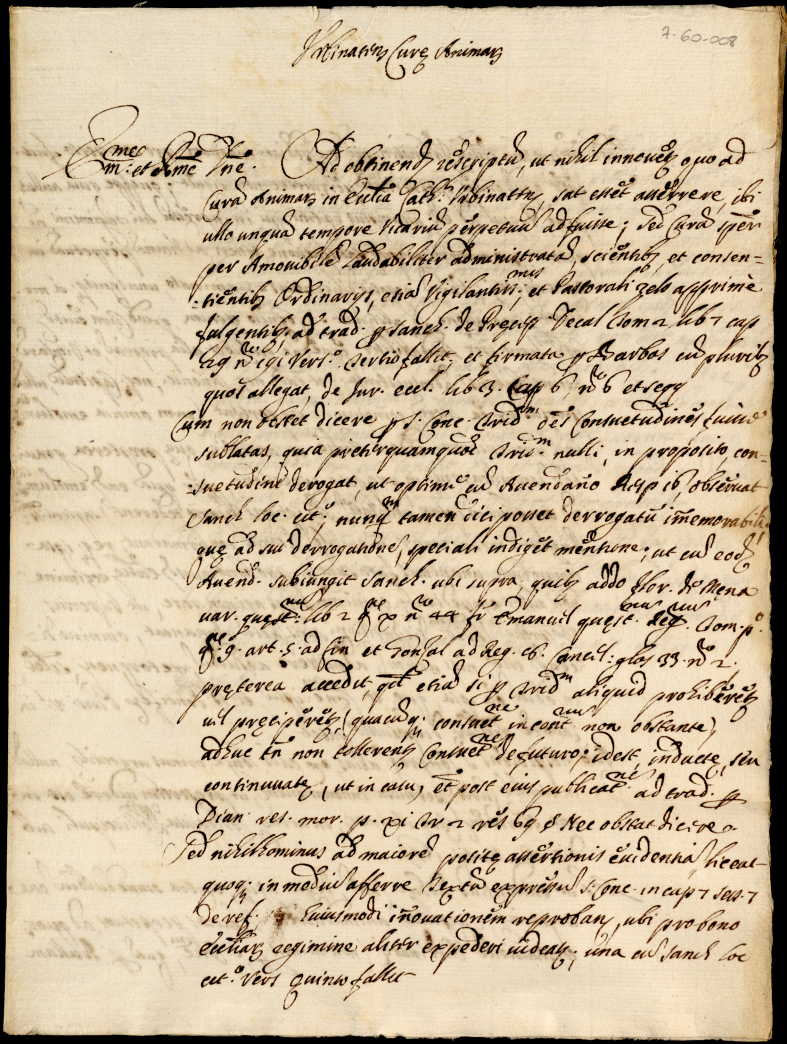 7-60-008
Urbinaten Curę Animarū
Em̃e: et Rm̃e Dn̄e. Ad obtinend rescriptū, ut nihil innouet̄ quo ad
Curā Animarū in Ecclīa Cath. Urbinaten, sat esset asserere, ibi
ullo unquā tempore Vicariū perpetuū adfuisse; sed Curā semper
per Amouibilē laudabiliter administratā, scientib; et consen-
-tientib; Ordinarijs, etiā Vigilantiss.mis et Pastorali zelo apprimè
fulgentib; ad trad. p Sanch. de Pręcep. Decal tom 2 lib 7 cap
29 n.o Vers.o tertio fallit, et firmata p Barbos cū plurib;
quos allegat, de Jur. eccl. lib 3. Cap 6, n.o 6 et seqq
Cum non obstet dicere p S. Conc. Trid.m oēs Consuetudines fuisse
sublatas, quia preterquamquod Trid.m nulli, in proposito, con-
-suetudini derogat, ut optimè cū Auendaño Resp 16, obseruat
Sanch loc. cit.o; nunq.m tamen dici posset derrogatū im̄emorabili
quę ad sui derrogationē, speciali indiget mentione; ut cū eod
Auend. subiungit Sanch. ubi supra, quib; addo Flor. de Mena
uar. quęst. lib 2 q.ne x n.o 44 fr Emanuel quęst. Reg. tom. p.o
q. 9. art. 5. ad fin et Gonzal ad Reg. 8. Cancel: glos 33. n.o 2.
pręterea accedit, quod etiā si p Trid.m aliquid prohiberet̄
uel pręciperet̄, (quacūq; consuet.ne in cont.rium non obstante)
adhuc tn̄ non tollerent̄ Consuet.nes de futuro; idest, inductę, seu
continuatę, (ut in casu) et post eius publicat.ne ad trad. p
Dian res. mor. p. xi tr 2 res 69 § Nec obstat dicere.
Sed nihilhominus ad maiorē positę assertionis euidentiā, liceat
quoq; in mediū afferre Textū expressū S. Conc. in cap 7 sess. 7
de ref. huiusmodi in̄ouationem reprobans, ubi pro bono
ecclīarū regimine aliter expedere uideat̄; una cū Sanch loc
cit.o Vers Quinto fallit